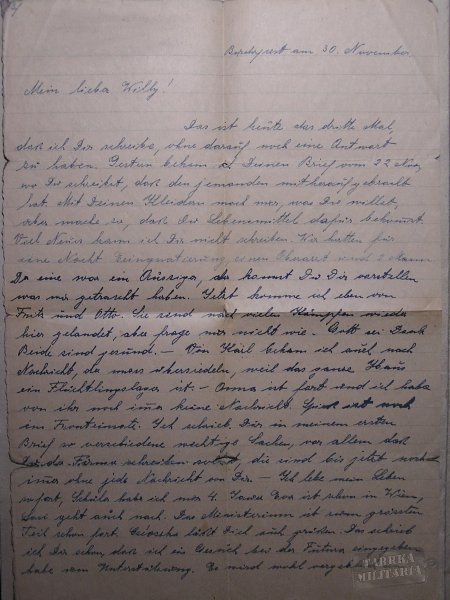 Budapest am 30. November.
Mein lieber Willy!
Das ist heute das dritte Mal,
daß ich Dir schreibe, ohne darauf noch eine Antwort
zu haben. Gestern bekam Deinen Brief vom 22 Nov,
wo Du schreibst, daß den jemanden mitheraufgebracht
hat. Mit Deinen Kleidern mach mer, was Du willst,
aber mache so, daß Du Lebensmittel dafür bekommst.
Viel Neues kann ich Dir nicht schreiben. Wir hatten für
eine Nacht Einquatierung, einen Oberarzt und 2 Mann
Da eine war ein Aussiger, da kannst Du Dir vorstellen
was wir getratscht haben. Jetzt komme ich eben von
Fritz und Otto. Sie sind nach vielen Kämpfen wieder
hier gelandet, aber frage mer nicht wie. Gott sei Dank
Beide sind gesund. — Von Karl bekam ich auch noch
Nachricht, da muss übersiedeln, weil das ganze Haus
ein Flüchtlingslager ist. — Omma ist fort und ich habe
von ihr noch imer keine Nachricht. ist noch
im Fronteinsatz. Ich schrieb Dir in meinem ersten
Brief so verschiedene wichtige Sachen, vor allem daß
Du der Firma schreiben die sind bis jetzt noch
imer ohne jede Nachricht von Dir. — Ich lebe mein Leben
so fort, Schule habe ich nur 4. Eva ist schon in Wien,
geht auch nach. Das Ministerium ist zum grössten
Teil schon fort. läßt Dich auch grüßen. Das schrieb
ich Dir schon, daß ich ein Gesuch bei der Futura eingegeben
habe um Unterstützung. Es wird wohl
TARRKA
MILITARIA